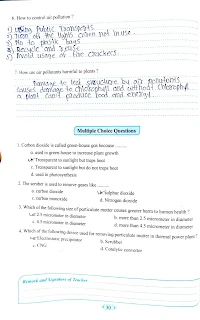 6. How to control air pollution ?
1) Using Public Transports
2) Turn off the lights when not in use
3) No to plastic bags
4) Recycle and Reuse
5) Avoid usage of fire crackers
7. How are air pollutants harmful to plants ?
Damage to leaf structure by air pollutants
causes damage to chlorophyll and without chlorophyll
a plant can't produce food and energy.
Multiple Choice Questions
1. Carbon dioxide is called green-house gas because
a. used in green house to increase plant growth
b. Transparent to sunlight but traps heat
c. Transparent to sunlight but do not traps heat
d. used in photosynthesis
2. The scrubber is used to remove gases like
a. carbon dioxide
b. Sulphur dioxide
c. carbon monoxide
d. Nitrogen dioxide
3. Which of the following size of particulate matter causes greater harm to human health ?
a. 2.5 micrometer in diameter
b. more than 2.5 micrometer in diameter
c. 4.5 micrometer in diameter
d. more than 4.5 micrometer in diameter
4. Which of the following device used for removing particulate matter in thermal power plant?
a. Electrostatic precipitator
b. Scrubber
c. CNG
d. Catalytic converter
Remark and Signature of Teacher
30